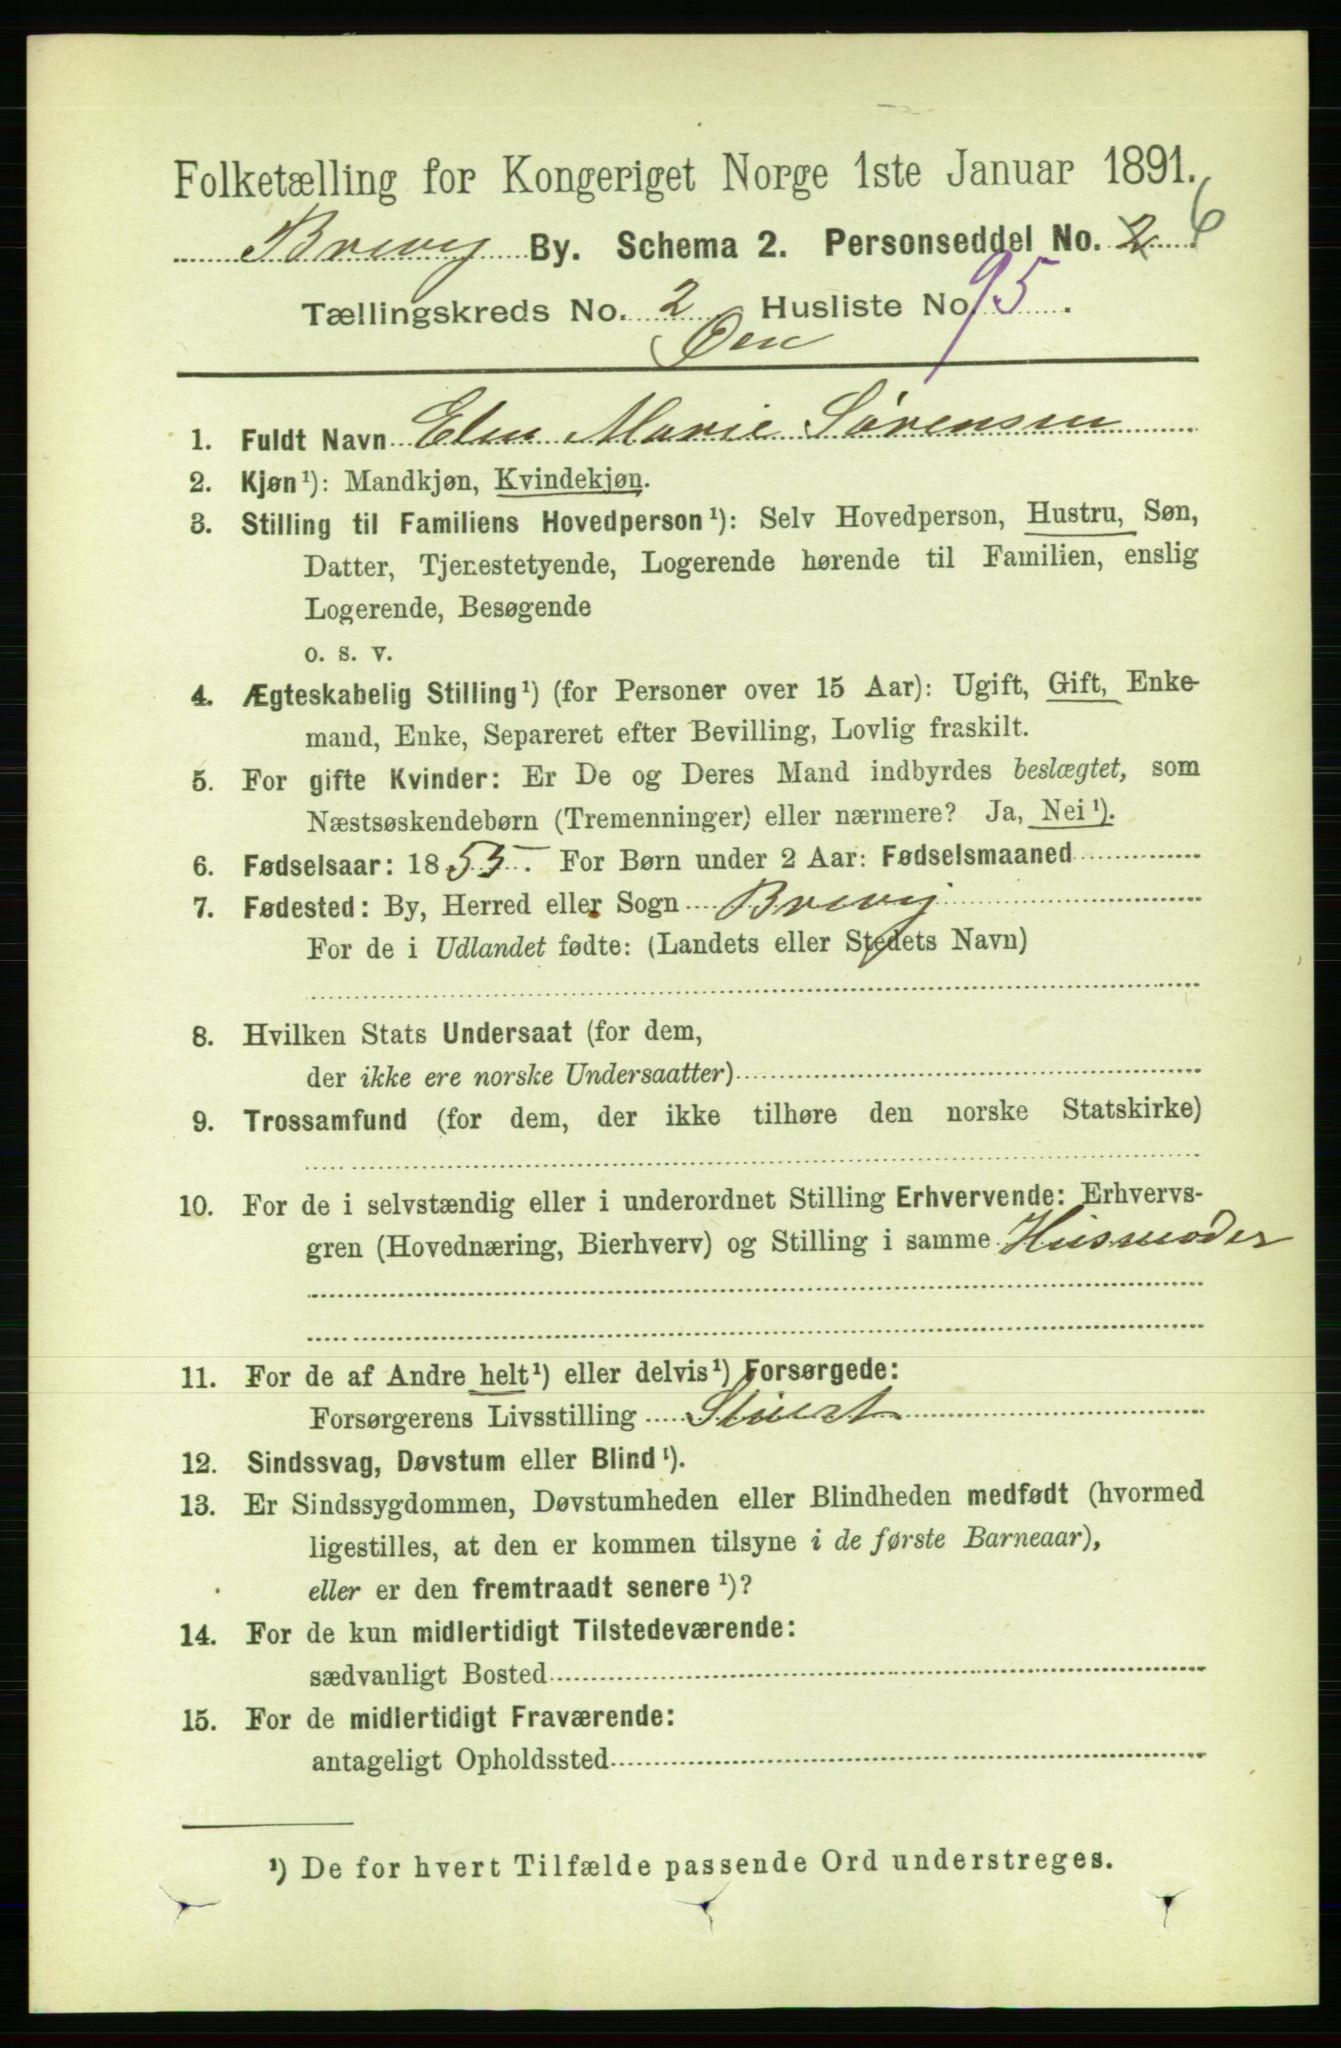 Folketælling for Kongeriget Norge 1ste Januar 1891.
Brevig By. Schema 2. Personseddel No. 2 6
Tællingskreds No. 2 Husliste No. 95.
Øen
1. Fuldt Navn Elen Marie Sørensen
2. Kjøn¹): Mandkjøn, Kvindekjøn.
3. Stilling til Familiens Hovedperson¹): Selv Hovedperson, Hustru, Søn,
Datter, Tjenestetyende, Logerende hørende til Familien, enslig
Logerende, Besøgende
o. s. v.
4. Ægteskabelig Stilling¹) (for Personer over 15 Aar): Ugift, Gift, Enke-
mand, Enke, Separeret efter Bevilling, Lovlig fraskilt.
5. For gifte Kvinder: Er De og Deres Mand indbyrdes beslægtet, som
Næstsøskendebørn (Tremenninger) eller nærmere? Ja, Nei¹).
6. Fødselsaar: 1855. For Børn under 2 Aar: Fødselsmaaned
7. Fødested: By, Herred eller Sogn Brevig
For de i Udlandet fødte: (Landets eller Stedets Navn)
8. Hvilken Stats Undersaat (for dem,
der ikke ere norske Undersaatter)
9. Trossamfund (for dem, der ikke tilhøre den norske Statskirke)
10. For de i selvstændig eller i underordnet Stilling Erhvervende: Erhvervs-
gren (Hovednæring, Bierhverv) og Stilling i samme Husmoder
11. For de af Andre helt¹) eller delvis¹) Forsørgede:
Forsørgerens Livsstilling Stuert
12. Sindssvag, Døvstum eller Blind¹).
13. Er Sindssygdommen, Døvstumheden eller Blindheden medfødt (hvormed
ligestilles, at den er kommen tilsyne i de første Barneaar),
eller er den fremtraadt senere¹)?
14. For de kun midlertidigt Tilstedeværende:
sædvanligt Bosted
15. For de midlertidigt Fraværende:
antageligt Opholdssted
¹) De for hvert Tilfælde passende Ord understreges.